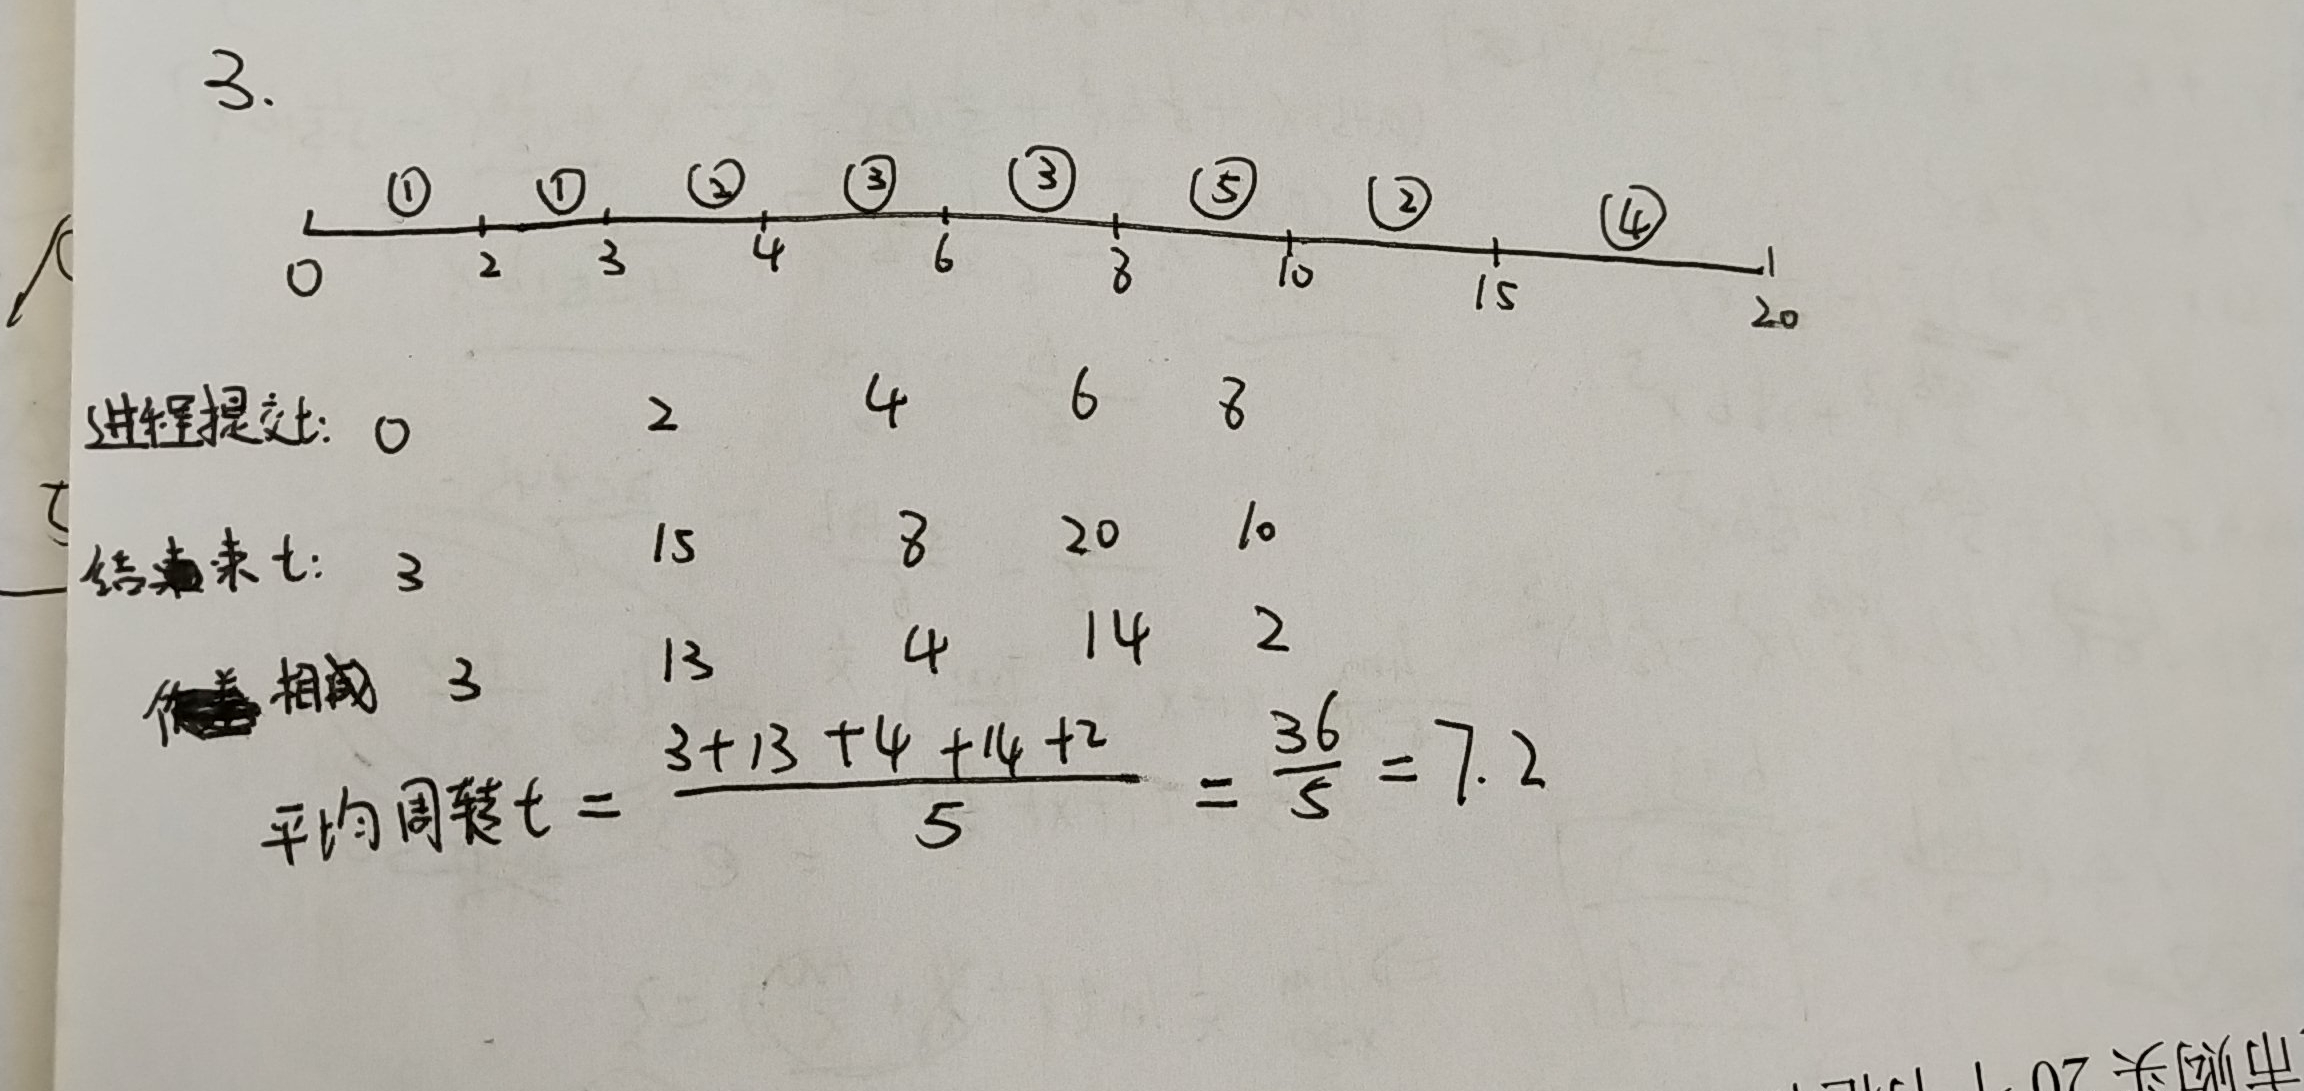 3.
① ① ② ③ ③ ⑤ ② ④
0 2 3 4 6 8 10 15 20
进程提交t: 0 2 4 6 8
结束t: 3 15 8 20 10
相减 3 13 4 14 2
平均周转t = \frac{3+13+4+14+2}{5} = \frac{36}{5} = 7.2